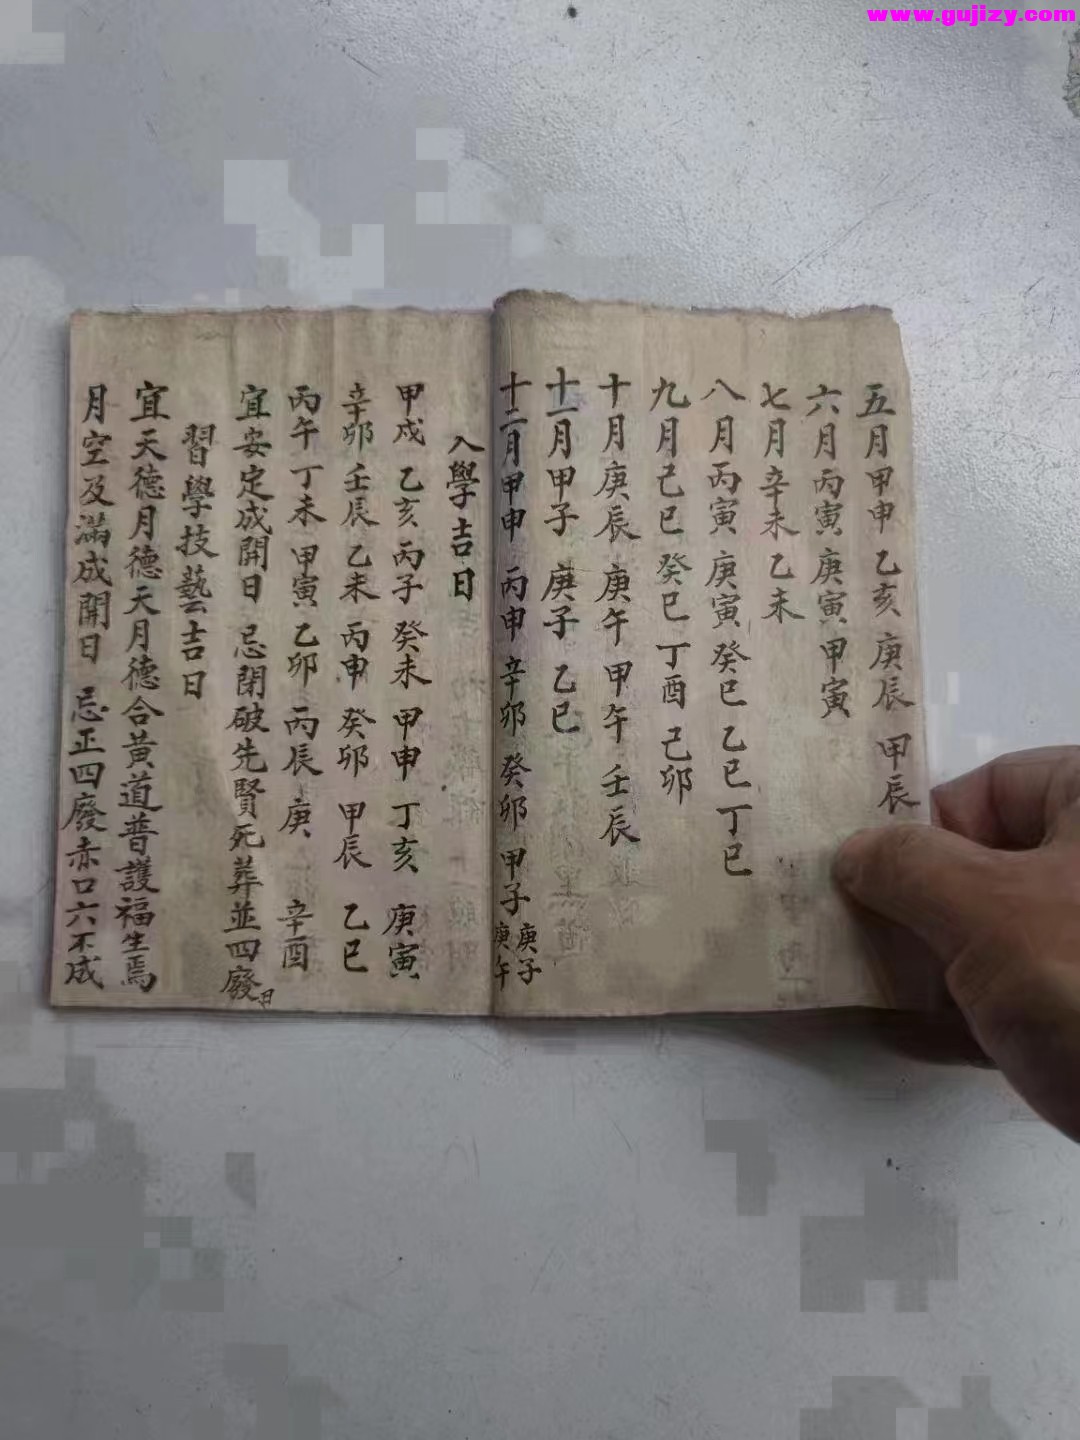 www.gujizy.com
五月甲申 乙亥 庚辰 甲辰
六月丙寅 庚寅 甲寅
七月辛未 乙未
八月丙寅 庚寅 癸巳 乙巳 丁巳
九月己巳 癸巳 丁酉 己卯
十月庚辰 庚午 甲午 壬辰
十一月甲子 庚子 乙巳
十二月甲申 丙申 辛卯 癸卯 甲子 庚子 庚午
入學吉日
甲戌 乙亥 丙子 癸未 甲申 丁亥 庚寅
辛卯 壬辰 乙未 丙申 癸卯 甲辰 乙巳
丙午 丁未 甲寅 乙卯 丙辰 庚 辛酉
宜安定成開日 忌閉破先賢死葬並四廢日
習學技藝吉日
宜天德月德天月德合黃道普護福生焉
月空及滿成開日 忌正四廢赤口六不成